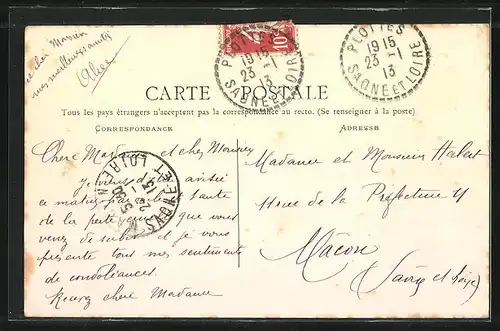 chère Madame
mes meilleures amitiés
Alice
10
PLOTTES
19 15
23 - 1
13
SAONE ET LOIRE
PLOTTES
19 15
23 - 1
13
SAONE ET LOIRE
CARTE POSTALE
Tous les pays étrangers n'acceptent pas la correspondance au recto. (Se renseigner à la poste)
CORRESPONDANCE
ADRESSE
Chère Madame et cher Monsieur
je viens avisée
ce matin par
de la perte que vous
venez de subir et je vous
présente tous mes sentiments
de condoléances.
Recevez chère Madame
SAONE ET LOIRE
Madame et Monsieur
rue de la Préfecture 4
Mâcon
(Saône et Loire)